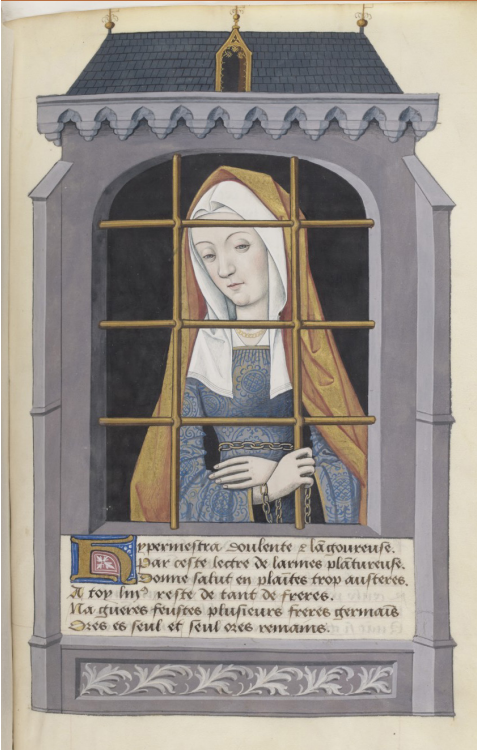 Hypermestra doulente & lāgoureuse.
Par ceste lectre de larmes plātureuse.
Donne salut en plaītes trop austeres.
A toy lin reste de tant de freres.
Na gueres feustes plusieurs freres germais
Ores es seul et seul ores remains.